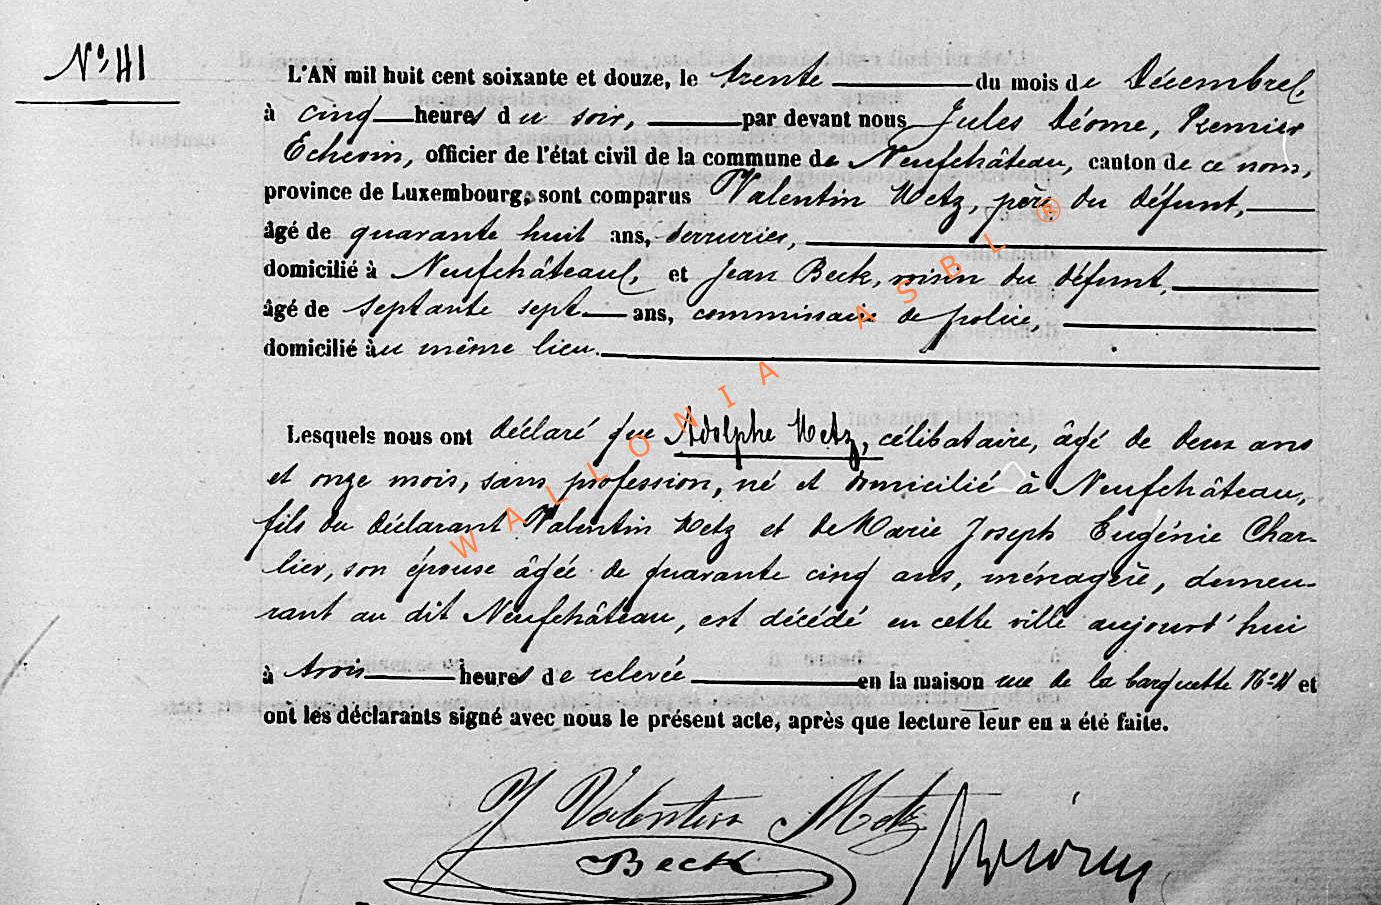 N° 41
L'AN mil huit cent soixante et douze, le trente du mois de Décembre,
à cinq heures du soir, par devant nous Jules Déome, Premier
Echevin, officier de l'état civil de la commune de Neufchâteau, canton de ce nom,
province de Luxembourg, sont comparus Valentin Metz, père du défunt,
âgé de quarante huit ans, serrurier,
domicilié à Neufchâteau, et Jean Beck, voisin du défunt,
âgé de septante sept ans, commissaire de police,
domicilié au même lieu.
Lesquels nous ont déclaré que Adolphe Metz, célibataire, âgé de deux ans
et onze mois, sans profession, né et domicilié à Neufchâteau,
fils du déclarant Valentin Metz et de Marie Joseph Eugénie Char-
lier, son épouse âgée de quarante cinq ans, ménagère, demeu-
rant au dit Neufchâteau, est décédé en cette ville aujourd'hui
à trois heures de relevée en la maison rue de la barquette N° 11 et
ont les déclarants signé avec nous le présent acte, après que lecture leur en a été faite.
Valentin Metz
Beck
WALLONIA ASBL ®